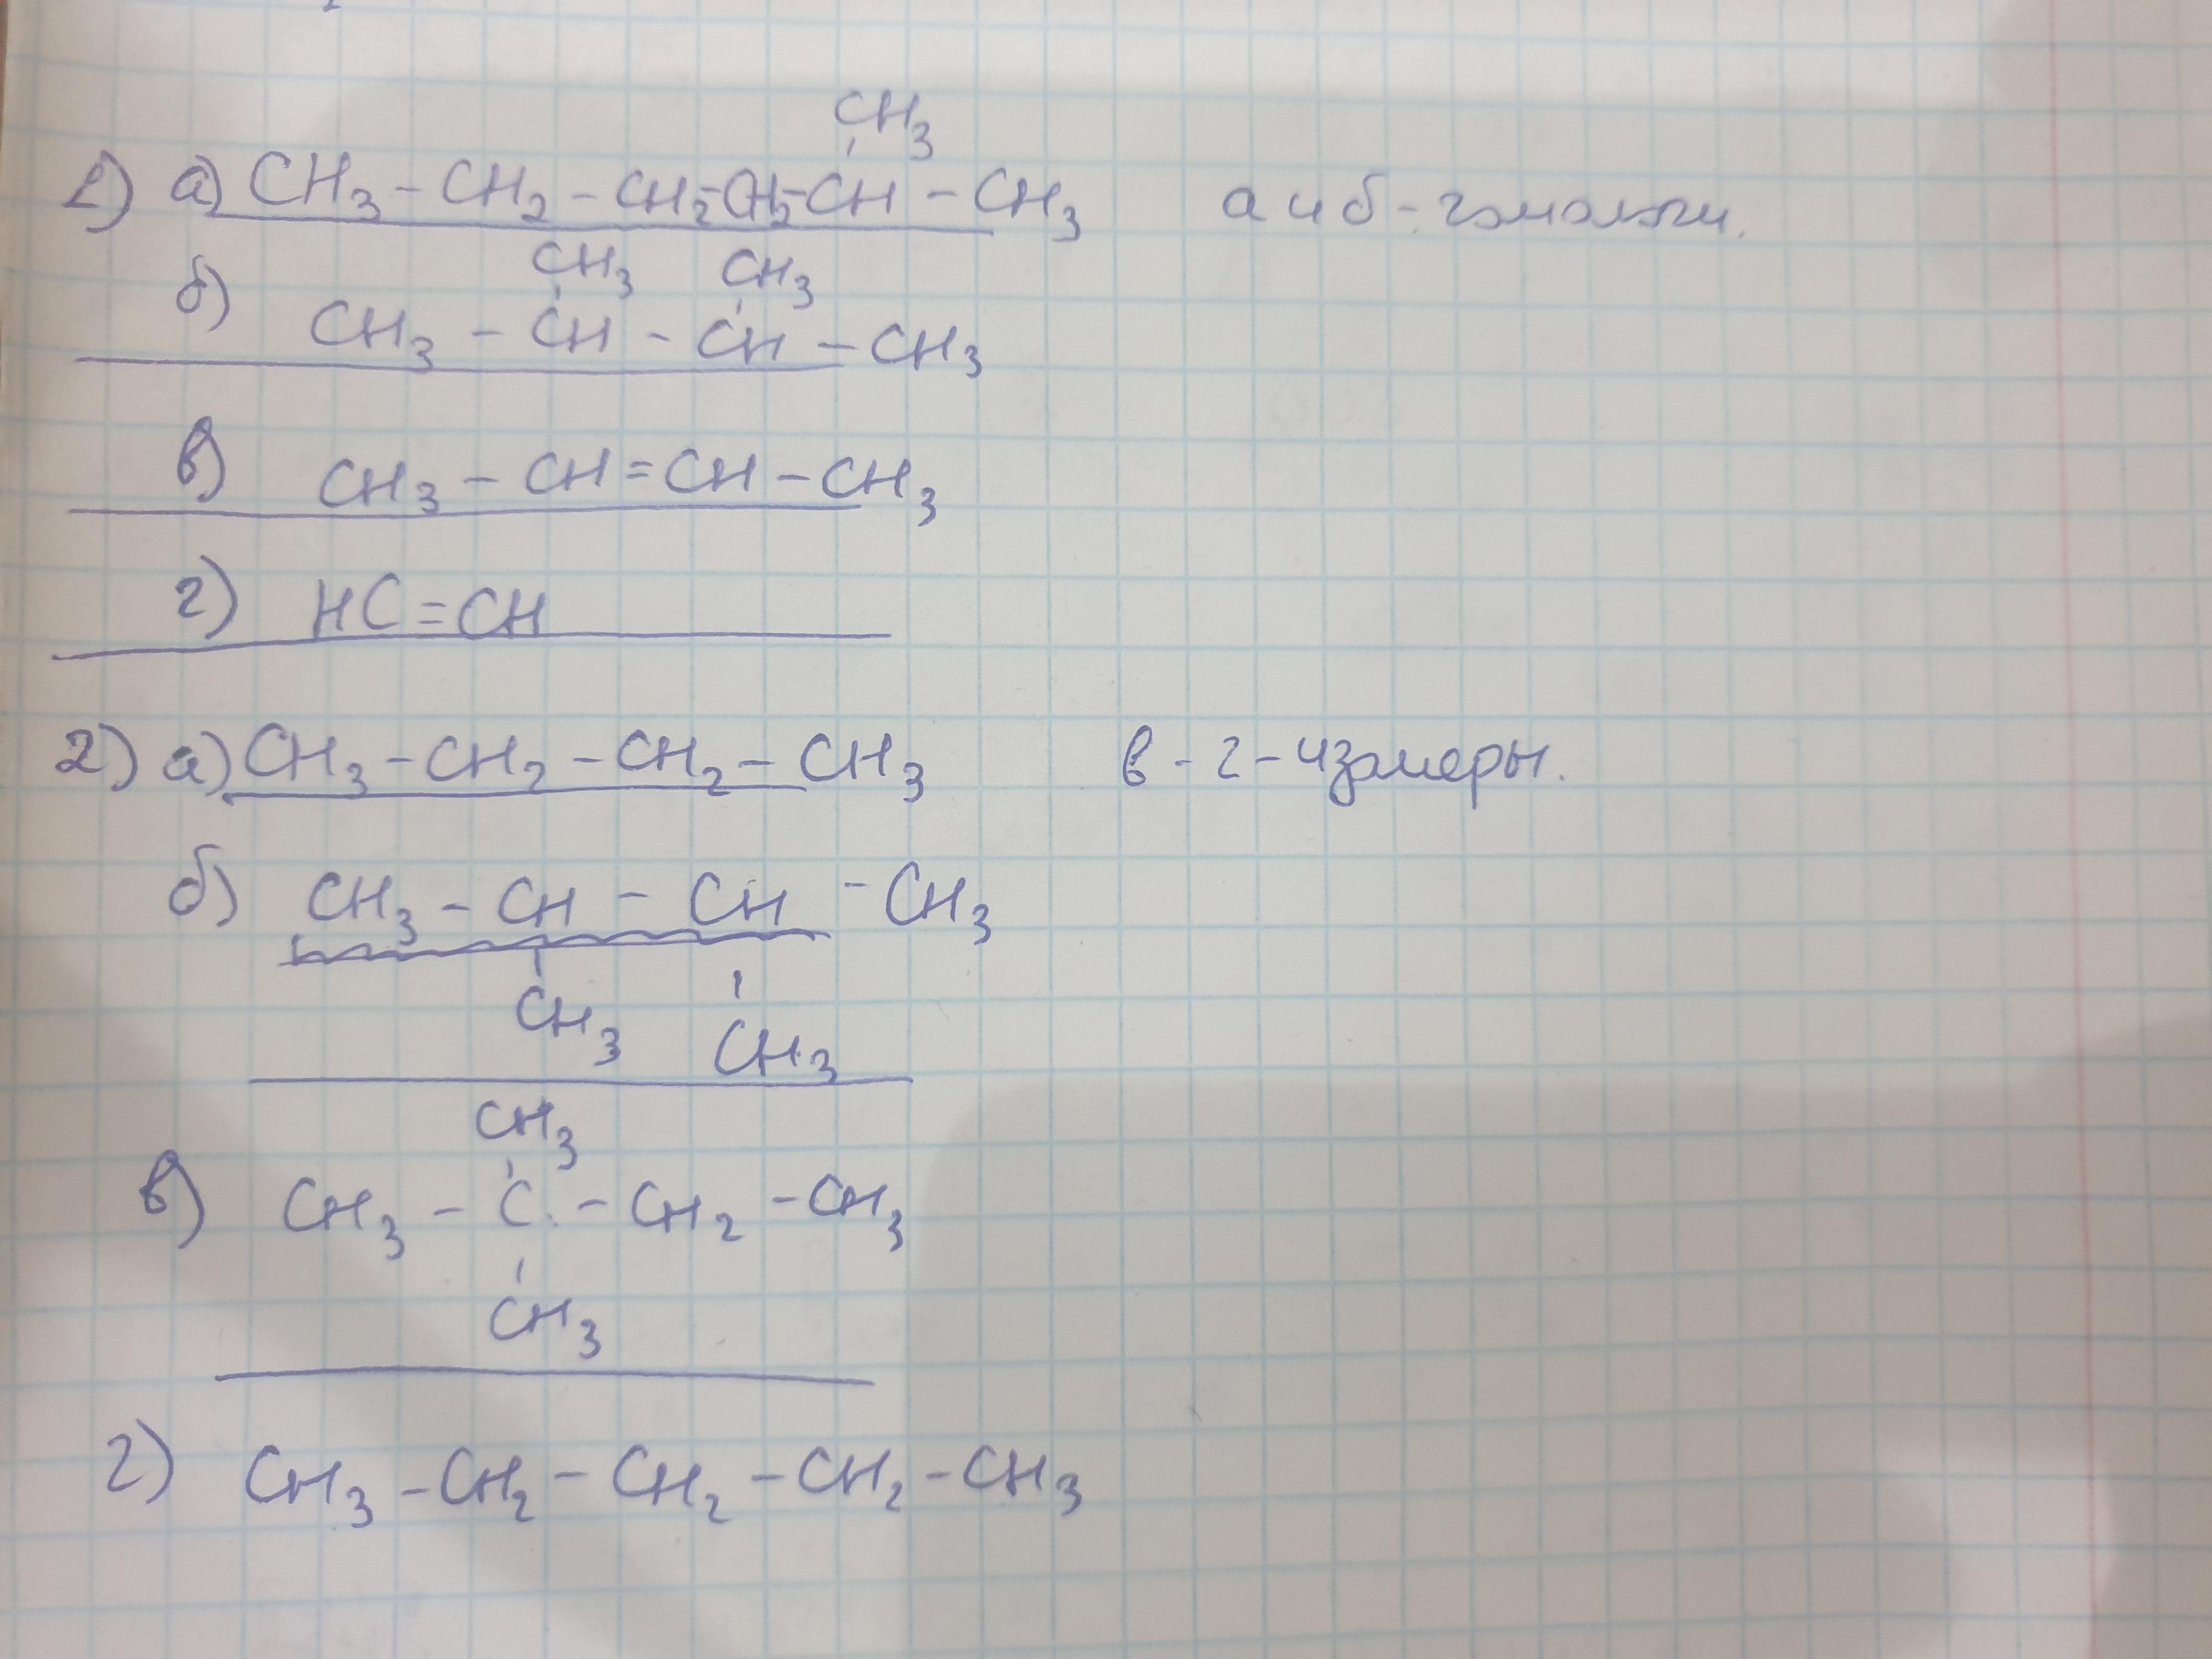 CH₃
1) а) CH₃ – CH₂ – CH₂ – CH₂ – CH – CH₃ а и б – гомологи.
CH₃ CH₃
б) CH₃ – CH – CH – CH₃
в) CH₃ – CH = CH – CH₃
г) HC = CH
2) а) CH₃ – CH₂ – CH₂ – CH₃ в – г – изомеры.
б) CH₃ – CH – CH – CH₃
CH₃ CH₃
CH₃
в) CH₃ – C – CH₂ – CH₃
CH₃
г) CH₃ – CH₂ – CH₂ – CH₂ – CH₃